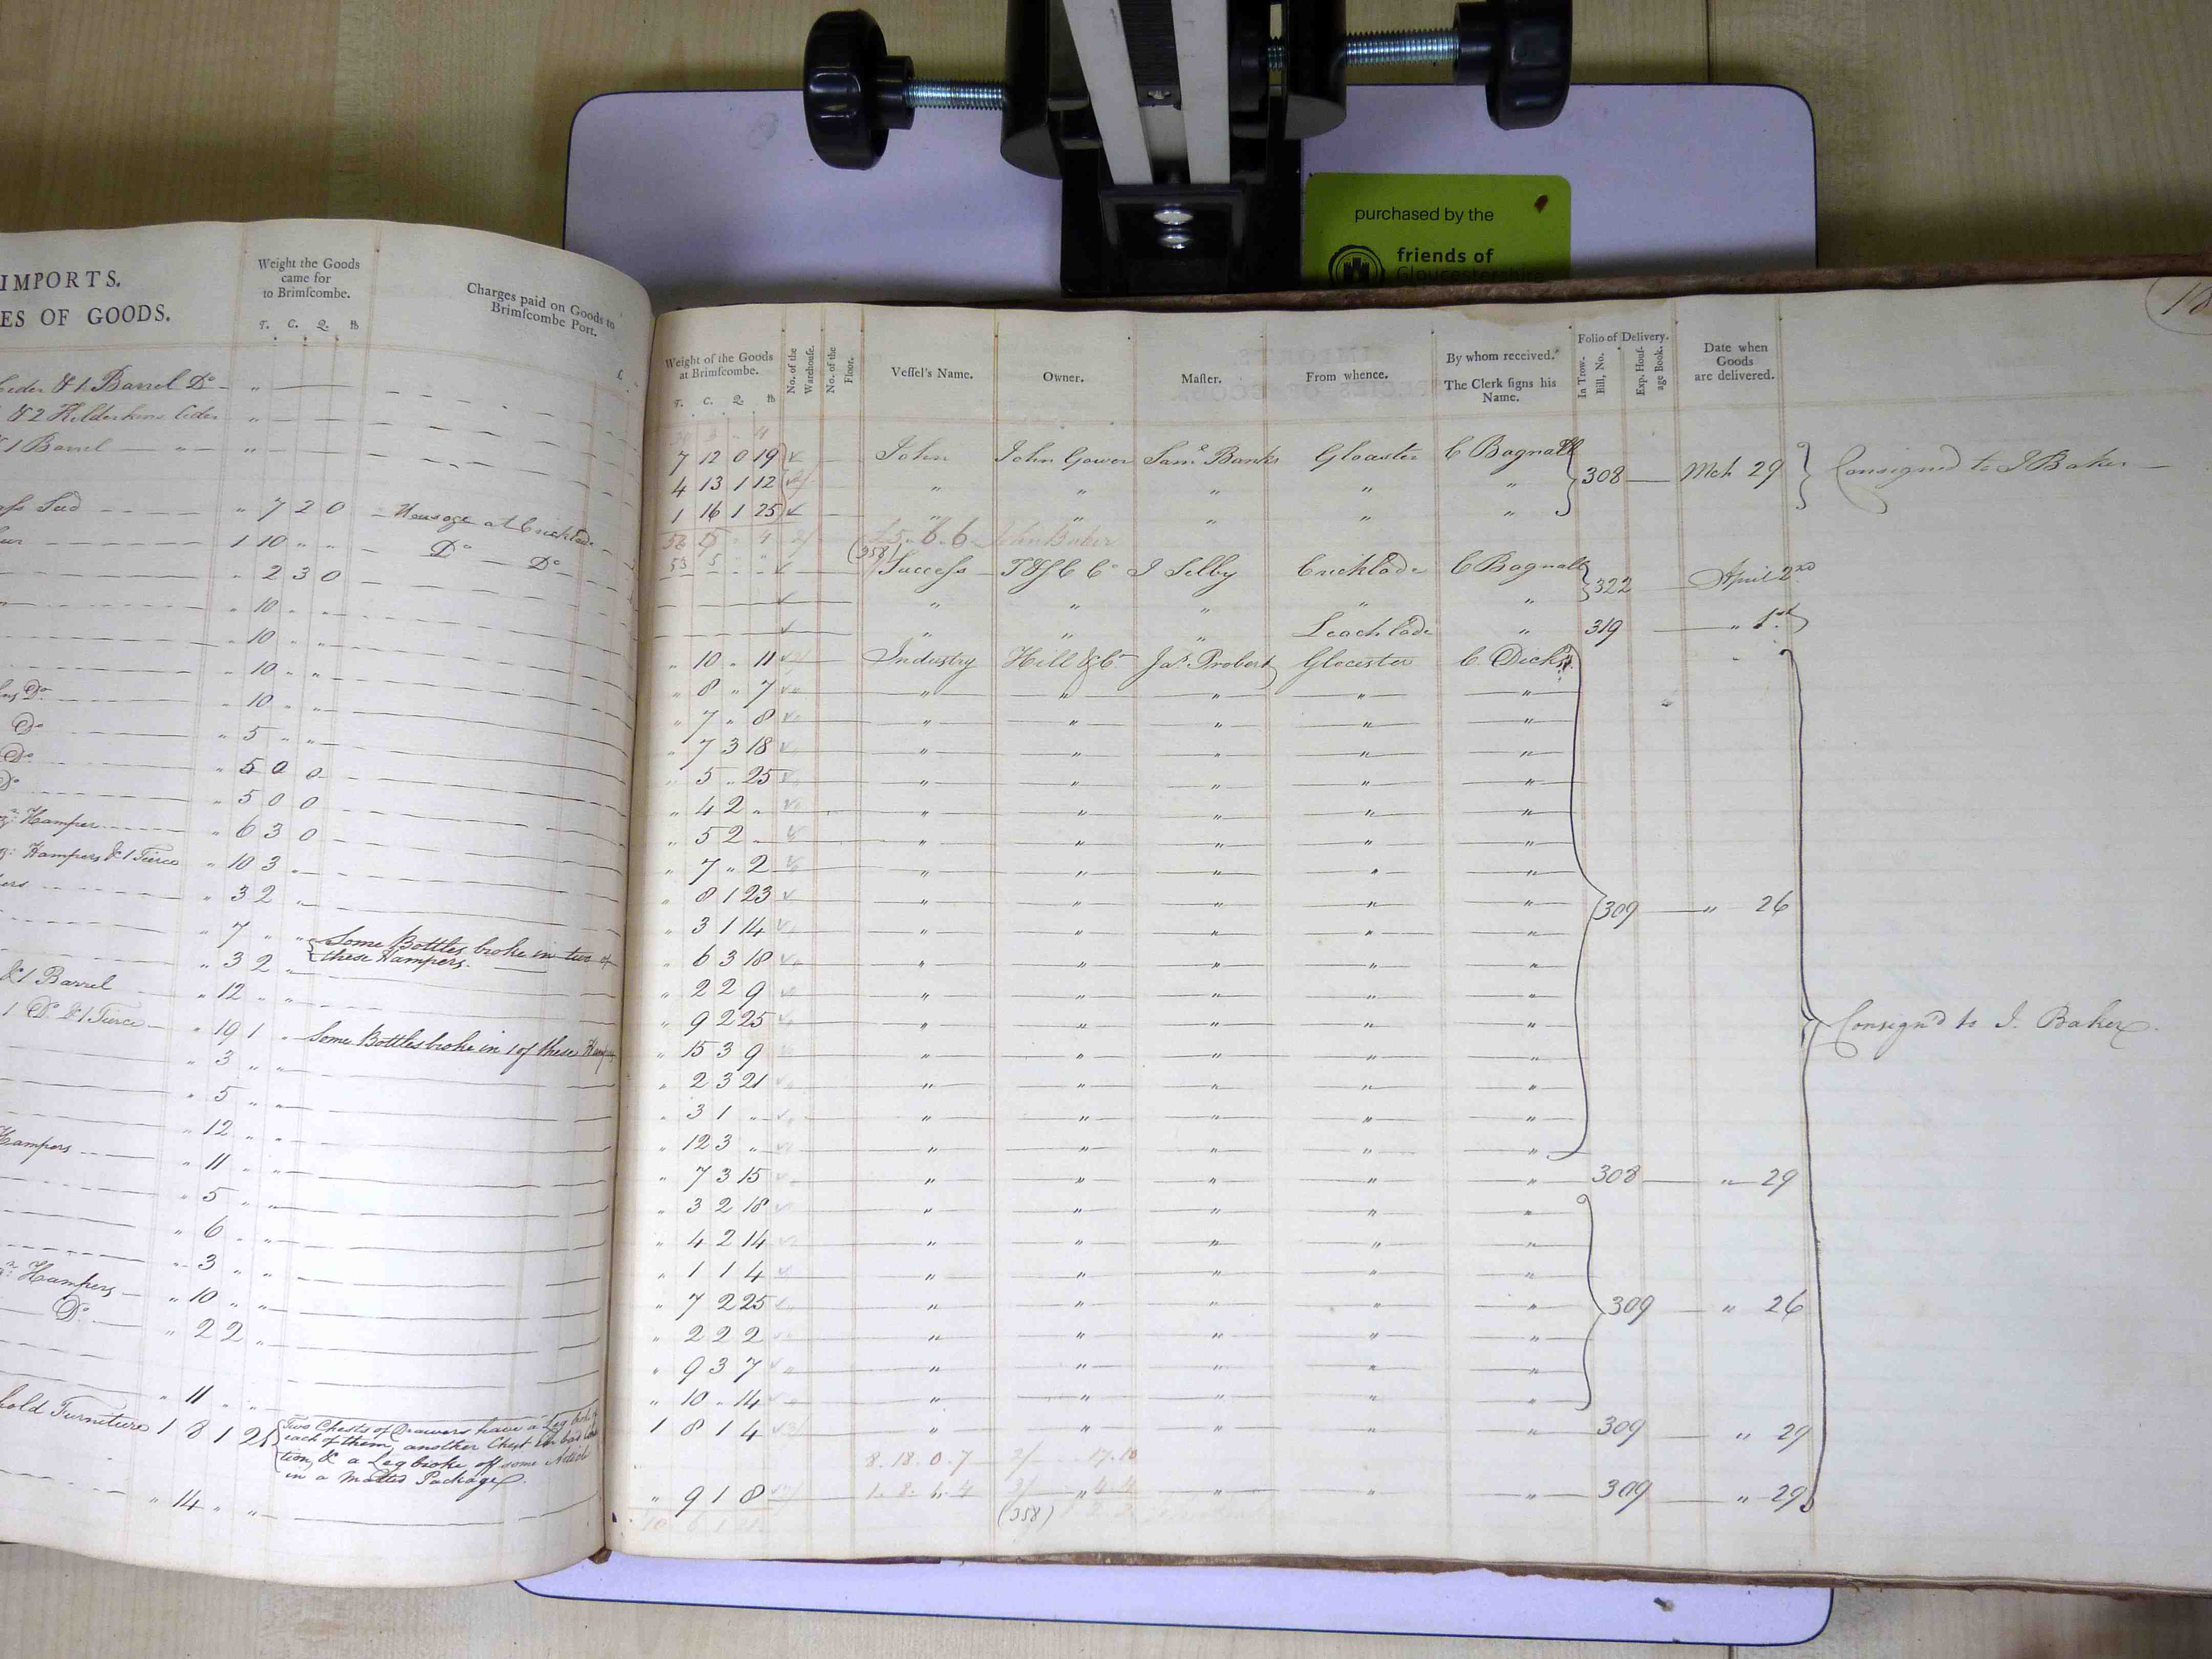 purchased by the
friends of
Gloucestershire
IMPORTS.
ES OF GOODS.
Weight the Goods
came for
to Brimſcombe.
T. C. Q. ℔
Charges paid on Goods to
Brimſcombe Port.
£.
Cider & 1 Barrel Do "
& 2 Kilderkins Cider "
1 Barrel "
" 7 2 0 Housage at Cricklade
1 10 " " Do Do
" 2 3 0
" 10 " "
" 10 " "
" 10 " "
Do " 10 " "
Do " 5 " "
Do " 5 0 0
Do " 5 0 0
Hamper " 6 3 0
Hampers & 1 Tierce " 10 3 "
" 3 2 "
" 7 " " Some Bottles broke in two of
" 3 2 " these Hampers.
& 1 Barrel " 12 " "
1 Do & 1 Tierce " 19 1 " Some Bottles broke in 1 of these
" 3 " "
" 5 " "
" 12 " "
Hampers " 11 " "
" 5 " "
" 6 " "
" 3 " "
Hampers " 10 " "
Do " 2 2 "
" 11 " "
hold Furniture 1 8 1 25 Two Chests of Drawers have a Leg broke
each of them, another Chest in bad
tion, & a Leg broke off some Article
in a Matted Package
" 14 " "
Weight of the Goods
at Brimſcombe.
T. C. Q. ℔
No. of the
Warehouſe.
No. of the
Floor.
Veſſel's Name.
Owner.
Maſter.
From whence.
By whom received.
The Clerk ſigns his
Name.
Folio of Delivery.
In Trow.
Bill, No.
Exp. Houſ-
age Book.
Date when
Goods
are delivered.
7 12 0 19 John John Gower Saml Banks Glocester C Bagnall
4 13 1 12 " " " " " 308 Mch 29 Consigned to J Baker
1 16 1 25 " " " " "
£5. 6. 6 John Baker
53 5 " " (358)
Success T & S C Co J Selby Cricklade C Bagnall 322 April 2nd
" " " " "
" " " Leachlade " 319 " 1st
" 10 " 11 Industry Hill & Co Jas Probert Glocester C. Dicks
" 8 " 7 " " " " "
" 7 " 8 " " " " "
" 7 3 18 " " " " "
" 5 " 25 " " " " "
" 4 2 " " " " " "
" 5 2 " " " " " "
" 7 " 2 " " " " "
" 8 1 23 " " " " " 309 " 26
" 3 1 14 " " " " "
" 6 3 18 " " " " "
" 2 2 9 " " " " "
" 9 2 25 " " " " " Consign'd to J. Baker
" 15 3 9 " " " " "
" 2 3 21 " " " " "
" 3 1 " " " " " "
" 12 3 " " " " " "
" 7 3 15 " " " " " 308 " 29
" 3 2 18 " " " " "
" 4 2 14 " " " " "
" 1 1 4 " " " " "
" 7 2 25 " " " " " 309 " 26
" 2 2 2 " " " " "
" 9 3 7 " " " " "
" 10 " 14 " " " " "
1 8 1 4 " " " " " 309 " 29
8. 18. 0. 7 2/ 17. 10
" 9 1 8 " " " " 309 " 29
(358)